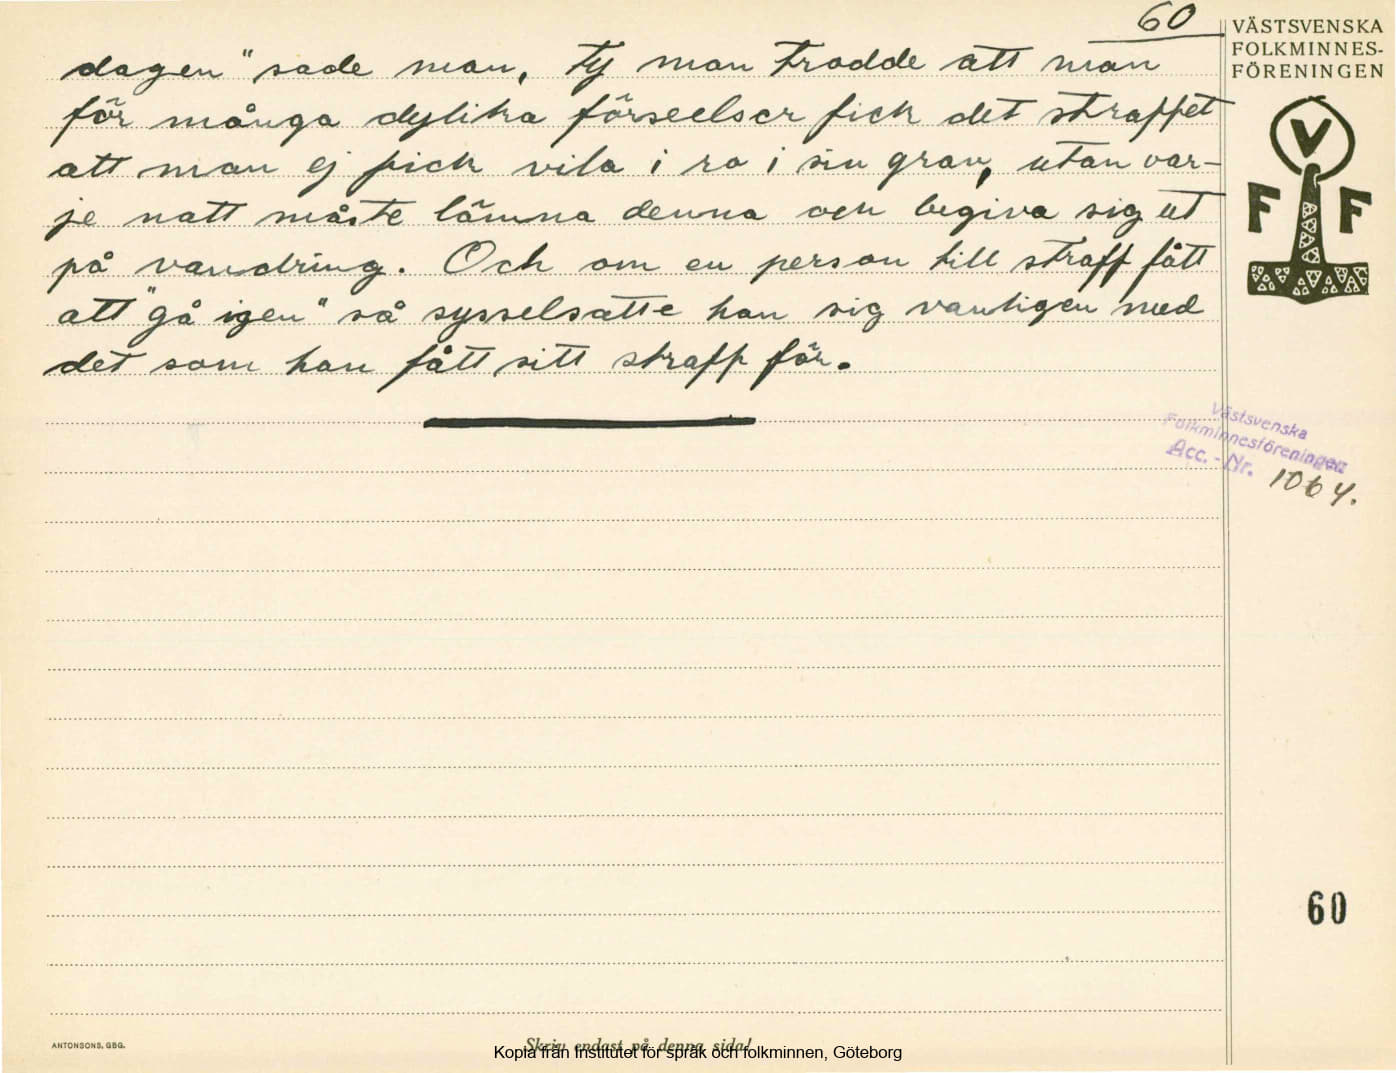 60
VÄSTSVENSKA
FOLKMINNES-
FÖRENINGEN
V
F F
dagen" sade man, ty man trodde att man
för många dylika förseelser fick det straffet
att man ej fick vila i ro i sin grav, utan var-
je natt måste lämna denna och begiva sig ut
på vandring. Och om en person till straff fått
att "gå igen" så sysselsatte han sig vanligen med
det som han fått sitt straff för.
Västsvenska
Folkminnesföreningen
Acc. - Nr. 1064.
60
ANTONSONS, GBG.
Skriv endast på denna sida!
Kopia från Institutet för språk och folkminnen, Göteborg